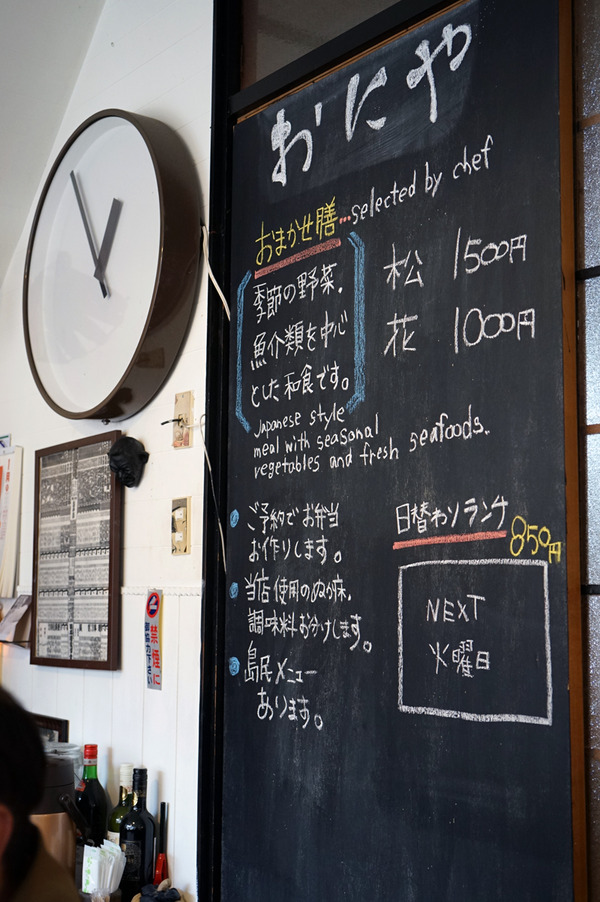 おにや
おまかせ膳…selected by chef
季節の野菜、
魚介類を中心
とした和食です。
Japanese style
meal with seasonal
vegetables and fresh seafoods.
松 1500円
花 1000円
ご予約でお弁当
お作りします。
当店使用のぬか床、
調味料お分けします。
島民メニュー
あります。
日替わりランチ
850円
NEXT
火曜日
禁煙に
御協力下さい